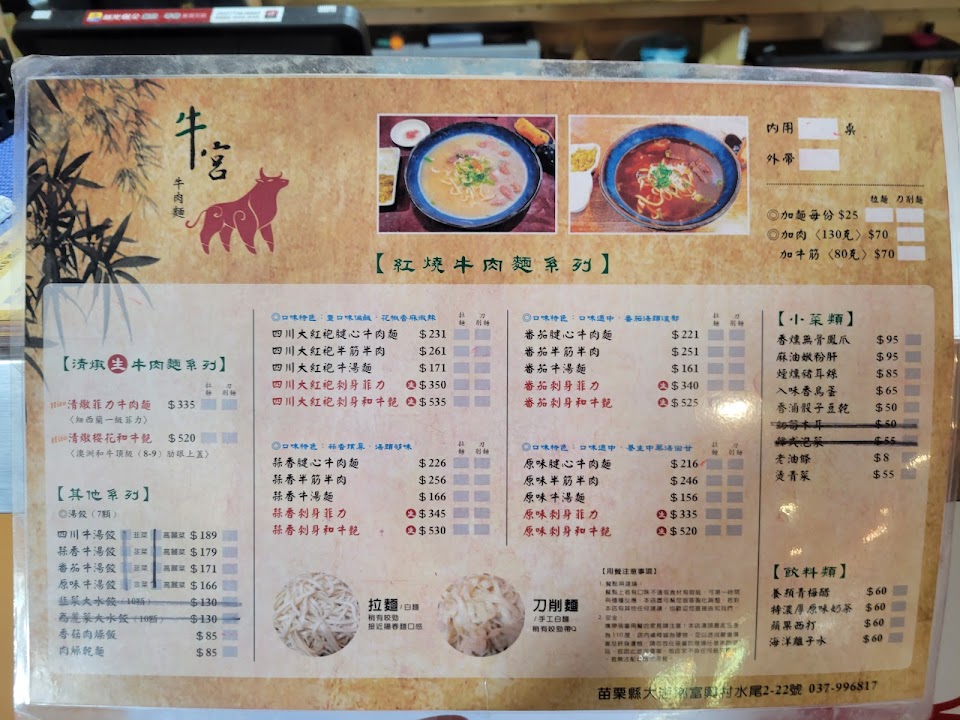 牛宮
牛肉麵
內用 桌
外帶
拉麵 刀削麵
◎加麵每份 $25
◎加肉〈130克〉$70
加牛筋〈80克〉$70
【紅燒牛肉麵系列】
【清燉生牛肉麵系列】
拉麵 刀削麵
清燉菲力牛肉麵 $335
(紐西蘭一級菲力)
清燉櫻花和牛麵 $520
(澳洲和牛頂級(8-9)肋眼上蓋)
【其他系列】
◎湯餃(7顆)
四川牛湯餃 韭菜 高麗菜 $189
蒜香牛湯餃 韭菜 高麗菜 $179
番茄牛湯餃 韭菜 高麗菜 $171
原味牛湯餃 韭菜 高麗菜 $166
韭菜大水餃(10顆) $130
高麗菜大水餃(10顆) $130
香菇肉燥飯 $85
肉燥乾麵 $85
◎口味特色：重口味偏鹹，花椒香麻微辣
拉麵 刀削麵
四川大紅袍腱心牛肉麵 $231
四川大紅袍半筋半肉 $261
四川大紅袍牛湯麵 $171
四川大紅袍刺身菲力 生 $350
四川大紅袍刺身和牛麵 生 $535
◎口味特色：蒜香撲鼻，湯頭夠味
拉麵 刀削麵
蒜香腱心牛肉麵 $226
蒜香半筋半肉 $256
蒜香牛湯麵 $166
蒜香刺身菲力 生 $345
蒜香刺身和牛麵 生 $530
◎口味特色：口味適中，番茄湯頭濃郁
拉麵 刀削麵
番茄腱心牛肉麵 $221
番茄半筋半肉 $251
番茄牛湯麵 $161
番茄刺身菲力 生 $340
番茄刺身和牛麵 生 $525
◎口味特色：口味適中，養生中藥湯回甘
拉麵 刀削麵
原味腱心牛肉麵 $216
原味半筋半肉 $246
原味牛湯麵 $156
原味刺身菲力 生 $335
原味刺身和牛麵 生 $520
拉麵/白麵
稍有咬勁
接近陽春麵口感
刀削麵
/手工白麵
稍有咬勁帶Q
【用餐注意事項】
1. 餐點與建議：
2. 安全：
【小菜類】
香燻無骨鳳爪 $95
麻油嫩粉肝 $95
煙燻豬耳絲 $85
入味香烏蛋 $65
香滷骰子豆乾 $50
$50
$55
老油條 $8
燙青菜 $55
【飲料類】
養顏青梅醋 $60
特濃厚原味奶茶 $60
蘋果西打 $60
海洋離子水 $60
苗栗縣大湖鄉富興村水尾2-22號 037-996817